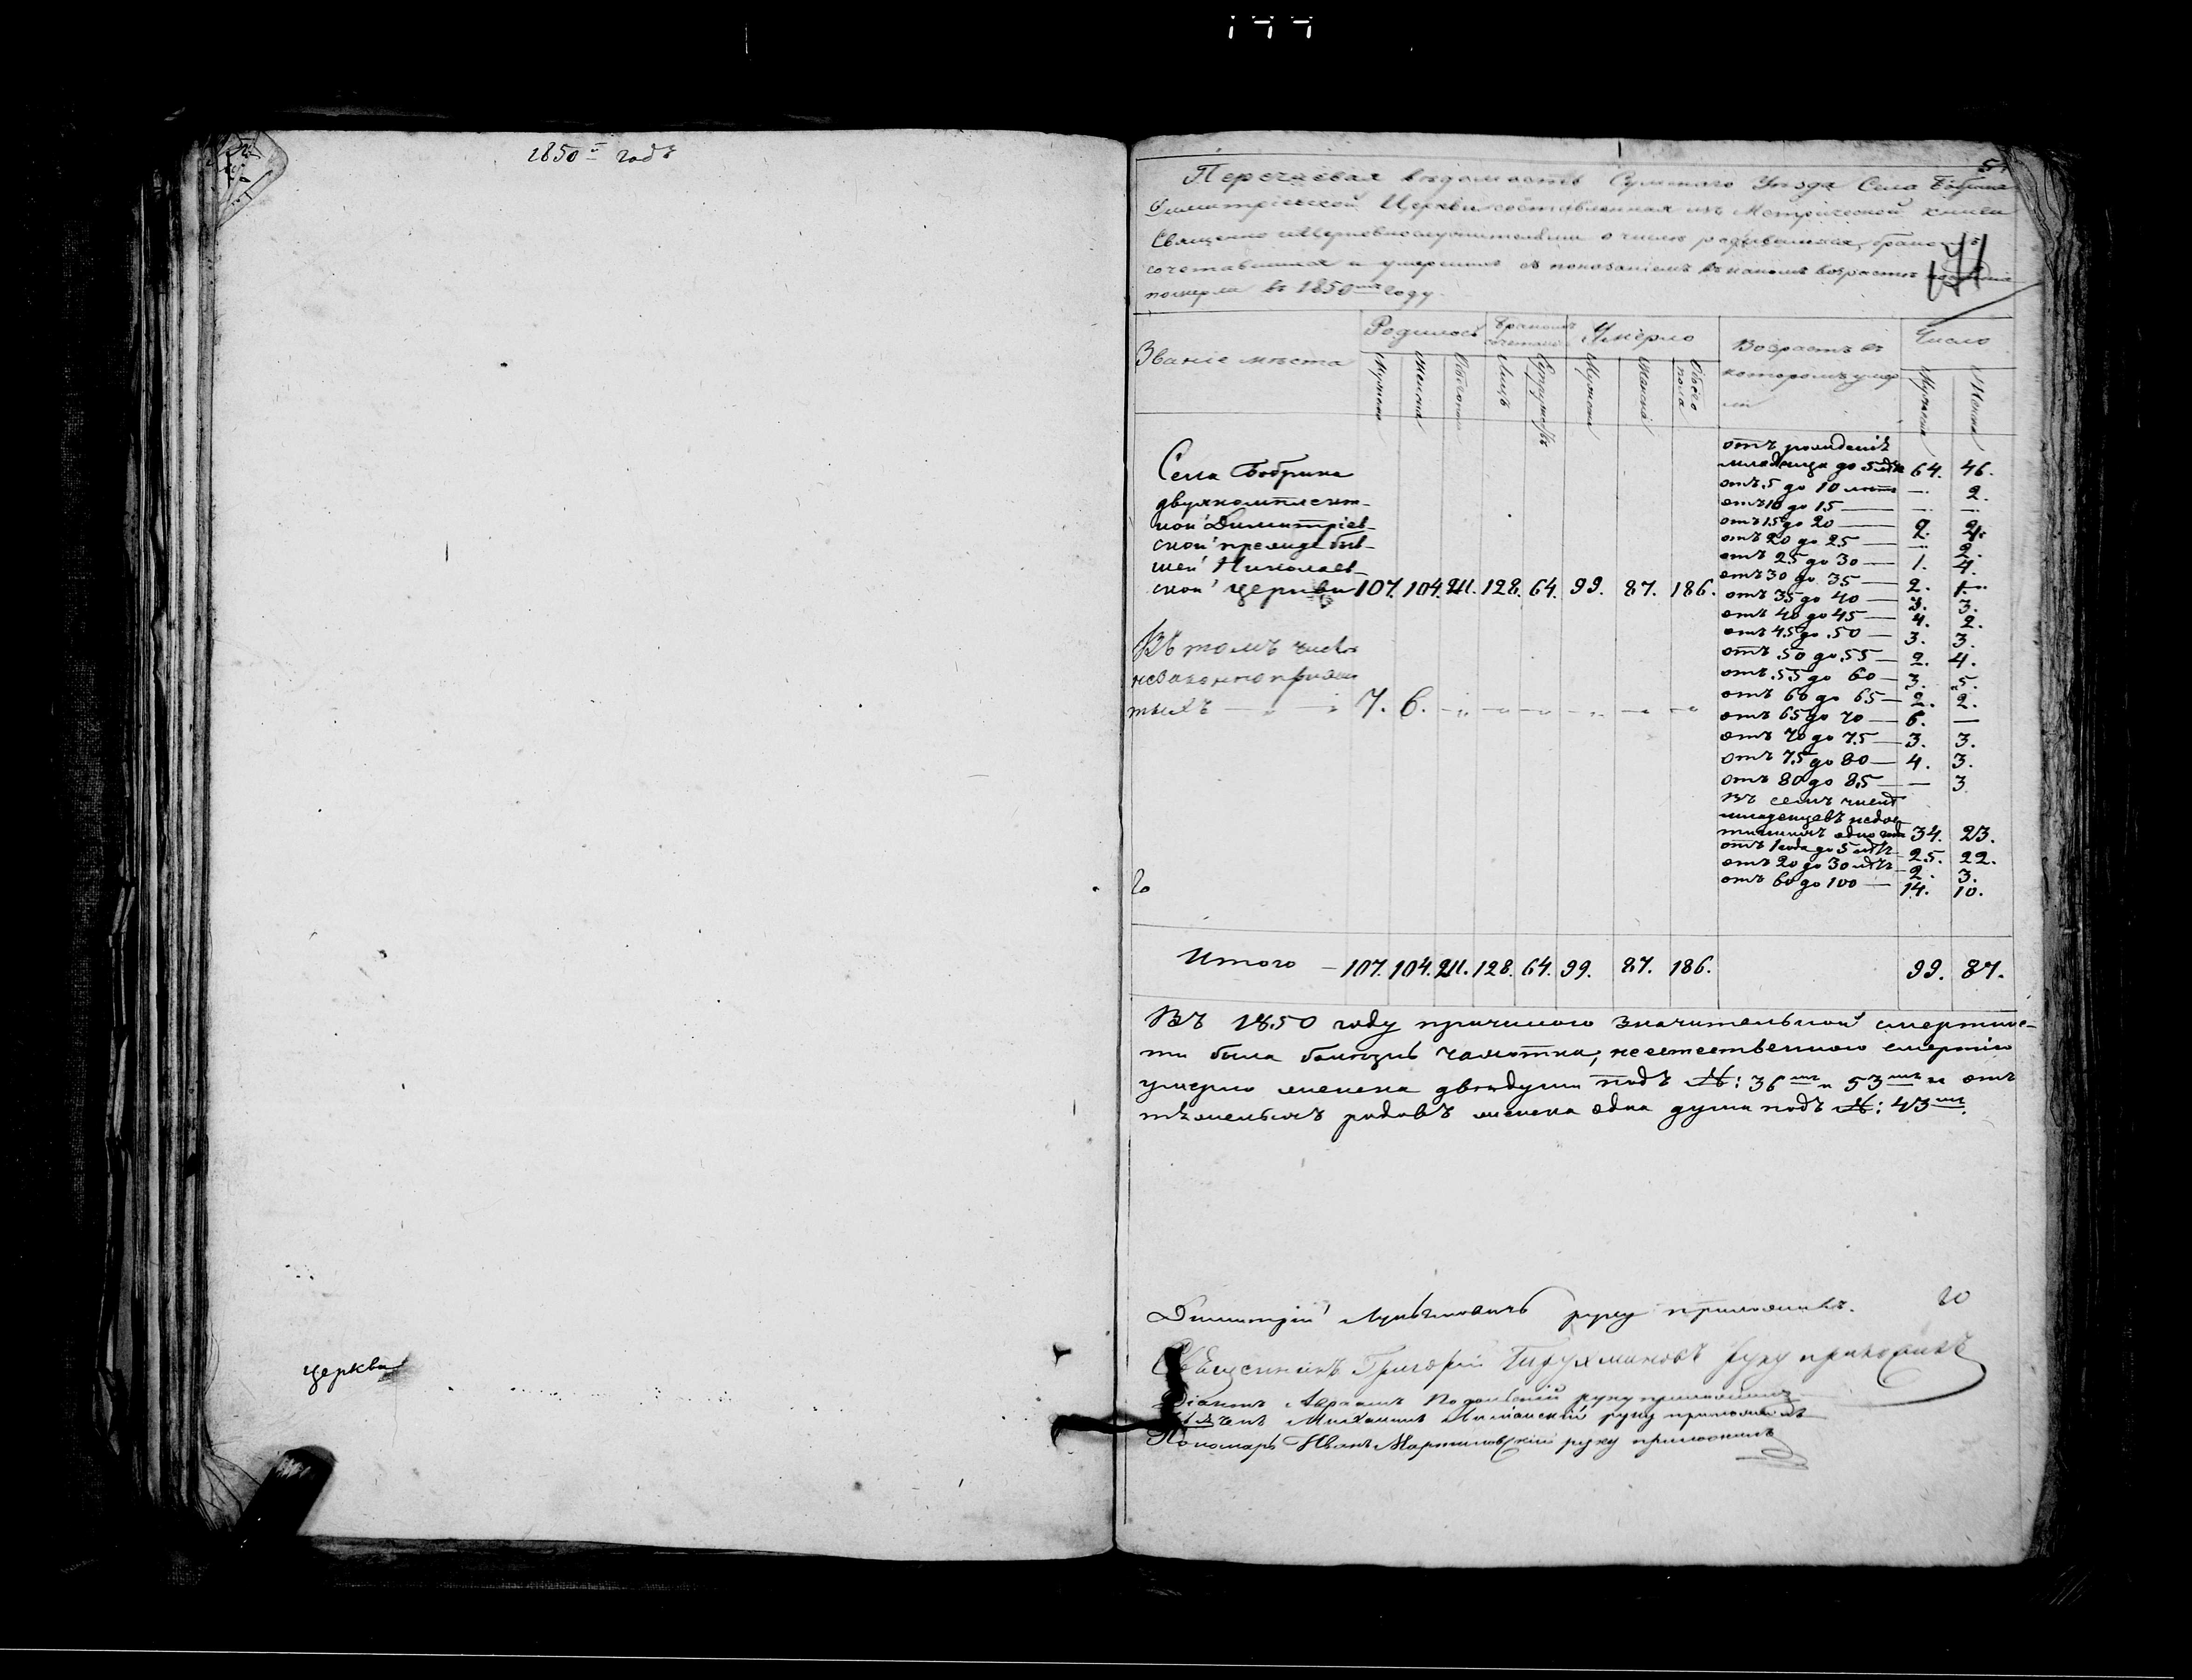 1850й годъ
церкви
Перечневая вѣдомость Сумскаго Уѣзда Села Бобрика
Димитріевской Церкви составленная изъ Метрической книги
Священно и Церковнослужителями о числѣ родившихся, бракомъ
сочетавшихся и умершихъ съ показаніемъ въ какомъ возрастѣ
померли въ 1850мъ году.
Званіе мѣста
Родилось
Бракомъ сочетано
Умерло
Возрастъ въ которомъ умерли
Число
Мужеска
Женска
Обоего пола
Лицъ
Супружествъ
Мужеска
Женска
Обоего пола
Мужеска
Женска
Села Бобрика
двухкомплект-
ной Димитріев-
ской прежде быв-
шей Николаев-
ской церкви 107. 104. 211. 128. 64. 99. 87. 186.
Въ томъ числѣ
незаконноприжи
тыхъ 7. 6.
отъ рожденія
младенца до 5 лѣтъ 64. 46.
отъ 5 до 10 лѣтъ — 2.
отъ 10 до 15 — —
отъ 15 до 20 — 2.
отъ 20 до 25 —
отъ 25 до 30 — 1.
отъ 30 до 35 — 2.
отъ 35 до 40 — 3.
отъ 40 до 45 — 4. 2.
отъ 45 до 50 — 3. 3.
отъ 50 до 55 — 2. 4.
отъ 55 до 60 — 3. 5.
отъ 60 до 65 — 2. 2.
отъ 65 до 70 — 6. —
отъ 70 до 75 — 3. 3.
отъ 75 до 80 — 4. 3.
отъ 80 до 85 — — 3
Въ семъ числѣ
младенцевъ недос
тигшихъ одно года 34. 23.
отъ 1 года до 5 лѣтъ 25. 22.
отъ 20 до 30 лѣтъ 2. 3.
отъ 60 до 100 — 14. 10.
Итого — 107. 104. 211. 128. 64. 99. 87. 186. 99. 87.
Въ 1850 году причиною значительной смертнос-
ти была болѣзнь чахотка, неестественною смертію
умерло женска двѣ души подъ №: 36мъ и 53мъ и отъ
тяжелыхъ родовъ женска одна душа подъ №: 43мъ
Димитрій руку приложилъ.
Священникъ Григорій руку приложилъ
Діаконъ Авраамъ Подольскій руку приложилъ
руку приложилъ
Пономарь Иванъ Мартиновскій руку приложилъ